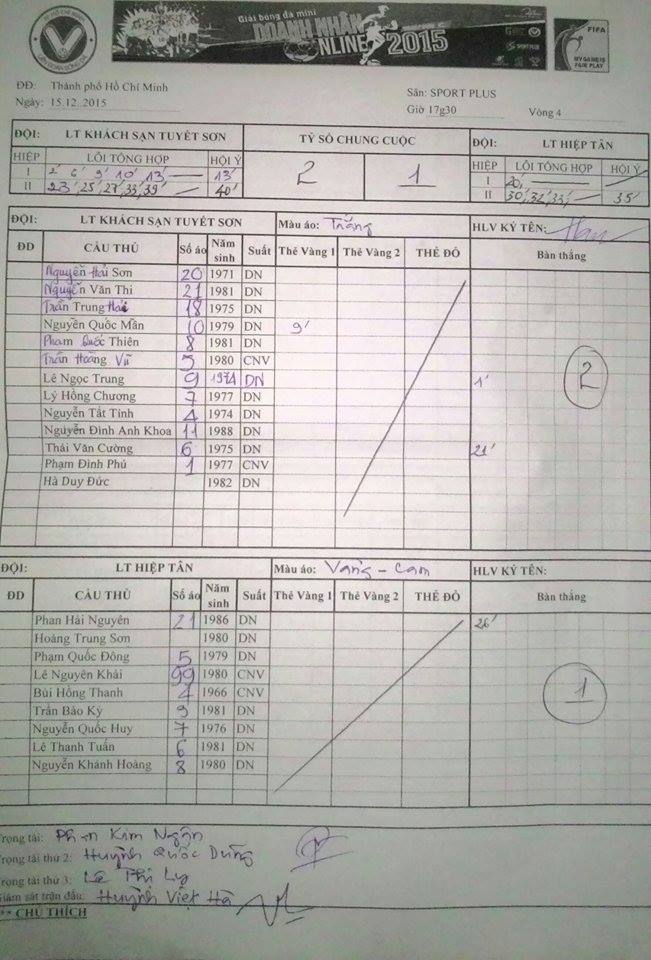 TP HỒ CHÍ MINH
LIÊN ĐOÀN BÓNG ĐÁ
Giải bóng đá mini
DOANH NHÂN
NLINE 2015
FIFA
MY GAME IS
FAIR PLAY
ĐĐ: Thành phố Hồ Chí Minh
Sân: SPORT PLUS
Ngày: 15.12. 2015
Giờ 17g30 Vòng 4
ĐỘI: LT KHÁCH SẠN TUYẾT SƠN TỶ SỐ CHUNG CUỘC ĐỘI: LT HIỆP TÂN
HIỆP LỖI TỔNG HỢP HỘI Ý 2 1 HIỆP LỖI TỔNG HỢP HỘI Ý
I 2' 6' 9' 10' 13' 13' I 20'
II 23', 25', 27', 33', 39' 40' II 30', 32', 33' 35'
ĐỘI: LT KHÁCH SẠN TUYẾT SƠN Màu áo: Trắng HLV KÝ TÊN:
ĐD CẦU THỦ Số áo Năm sinh Suất Thẻ Vàng 1 Thẻ Vàng 2 THẺ ĐỎ Bàn thắng
Nguyễn Hải Sơn 20 1971 DN
Nguyễn Văn Thi 21 1981 DN
Trần Trung Hải 18 1975 DN
Nguyễn Quốc Mẫn 10 1979 DN 9'
Phạm Quốc Thiên 8 1981 DN
Trần Hoàng Vũ 5 1980 CNV
Lê Ngọc Trung 9 1974 DN 1'
Lý Hồng Chương 7 1977 DN
Nguyễn Tất Tính 4 1974 DN
Nguyễn Đình Anh Khoa 11 1988 DN
Thái Văn Cường 6 1975 DN 21'
Phạm Đình Phú 1 1977 CNV
Hà Duy Đức 1982 DN
2
ĐỘI: LT HIỆP TÂN Màu áo: Vàng - Cam HLV KÝ TÊN:
ĐD CẦU THỦ Số áo Năm sinh Suất Thẻ Vàng 1 Thẻ Vàng 2 THẺ ĐỎ Bàn thắng
Phan Hải Nguyên 21 1986 DN 26'
Hoàng Trung Sơn 1980 DN
Phạm Quốc Đông 5 1979 DN
Lê Nguyên Khải 99 1980 CNV
Bùi Hồng Thanh 4 1966 CNV
Trần Bảo Kỳ 9 1981 DN
Nguyễn Quốc Huy 7 1976 DN
Lê Thanh Tuấn 6 1981 DN
Nguyễn Khánh Hoàng 8 1980 DN
1
Trọng tài: Phan Kim Ngân
Trọng tài thứ 2: Huỳnh Quốc Dũng
Trọng tài thứ 3: Lê Thi Ly
Giám sát trận đấu: Huỳnh Việt Hà
** CHÚ THÍCH